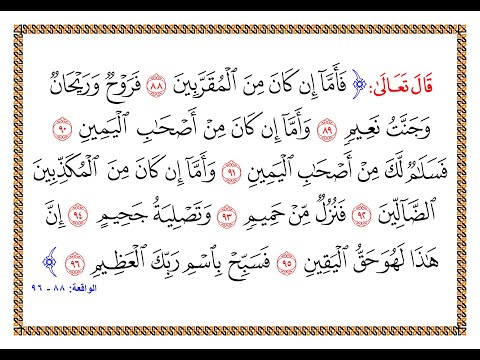 قَالَ تَعَالَىٰ: ﴿ فَأَمَّآ إِن كَانَ مِنَ ٱلْمُقَرَّبِينَ ٨٨ فَرَوْحٌ وَرَيْحَانٌ
وَجَنَّتُ نَعِيمٍ ٨٩ وَأَمَّآ إِن كَانَ مِنْ أَصْحَابِ ٱلْيَمِينِ ٩٠
فَسَلَامٌ لَّكَ مِنْ أَصْحَابِ ٱلْيَمِينِ ٩١ وَأَمَّآ إِن كَانَ مِنَ ٱلْمُكَذِّبِينَ
ٱلضَّآلِّينَ ٩٢ فَنُزُلٌ مِّنْ حَمِيمٍ ٩٣ وَتَصْلِيَةُ جَحِيمٍ ٩٤ إِنَّ
هَٰذَا لَهُوَ حَقُّ ٱلْيَقِينِ ٩٥ فَسَبِّحْ بِٱسْمِ رَبِّكَ ٱلْعَظِيمِ ٩٦ ﴾
الواقعة: ٨٨ - ٩٦